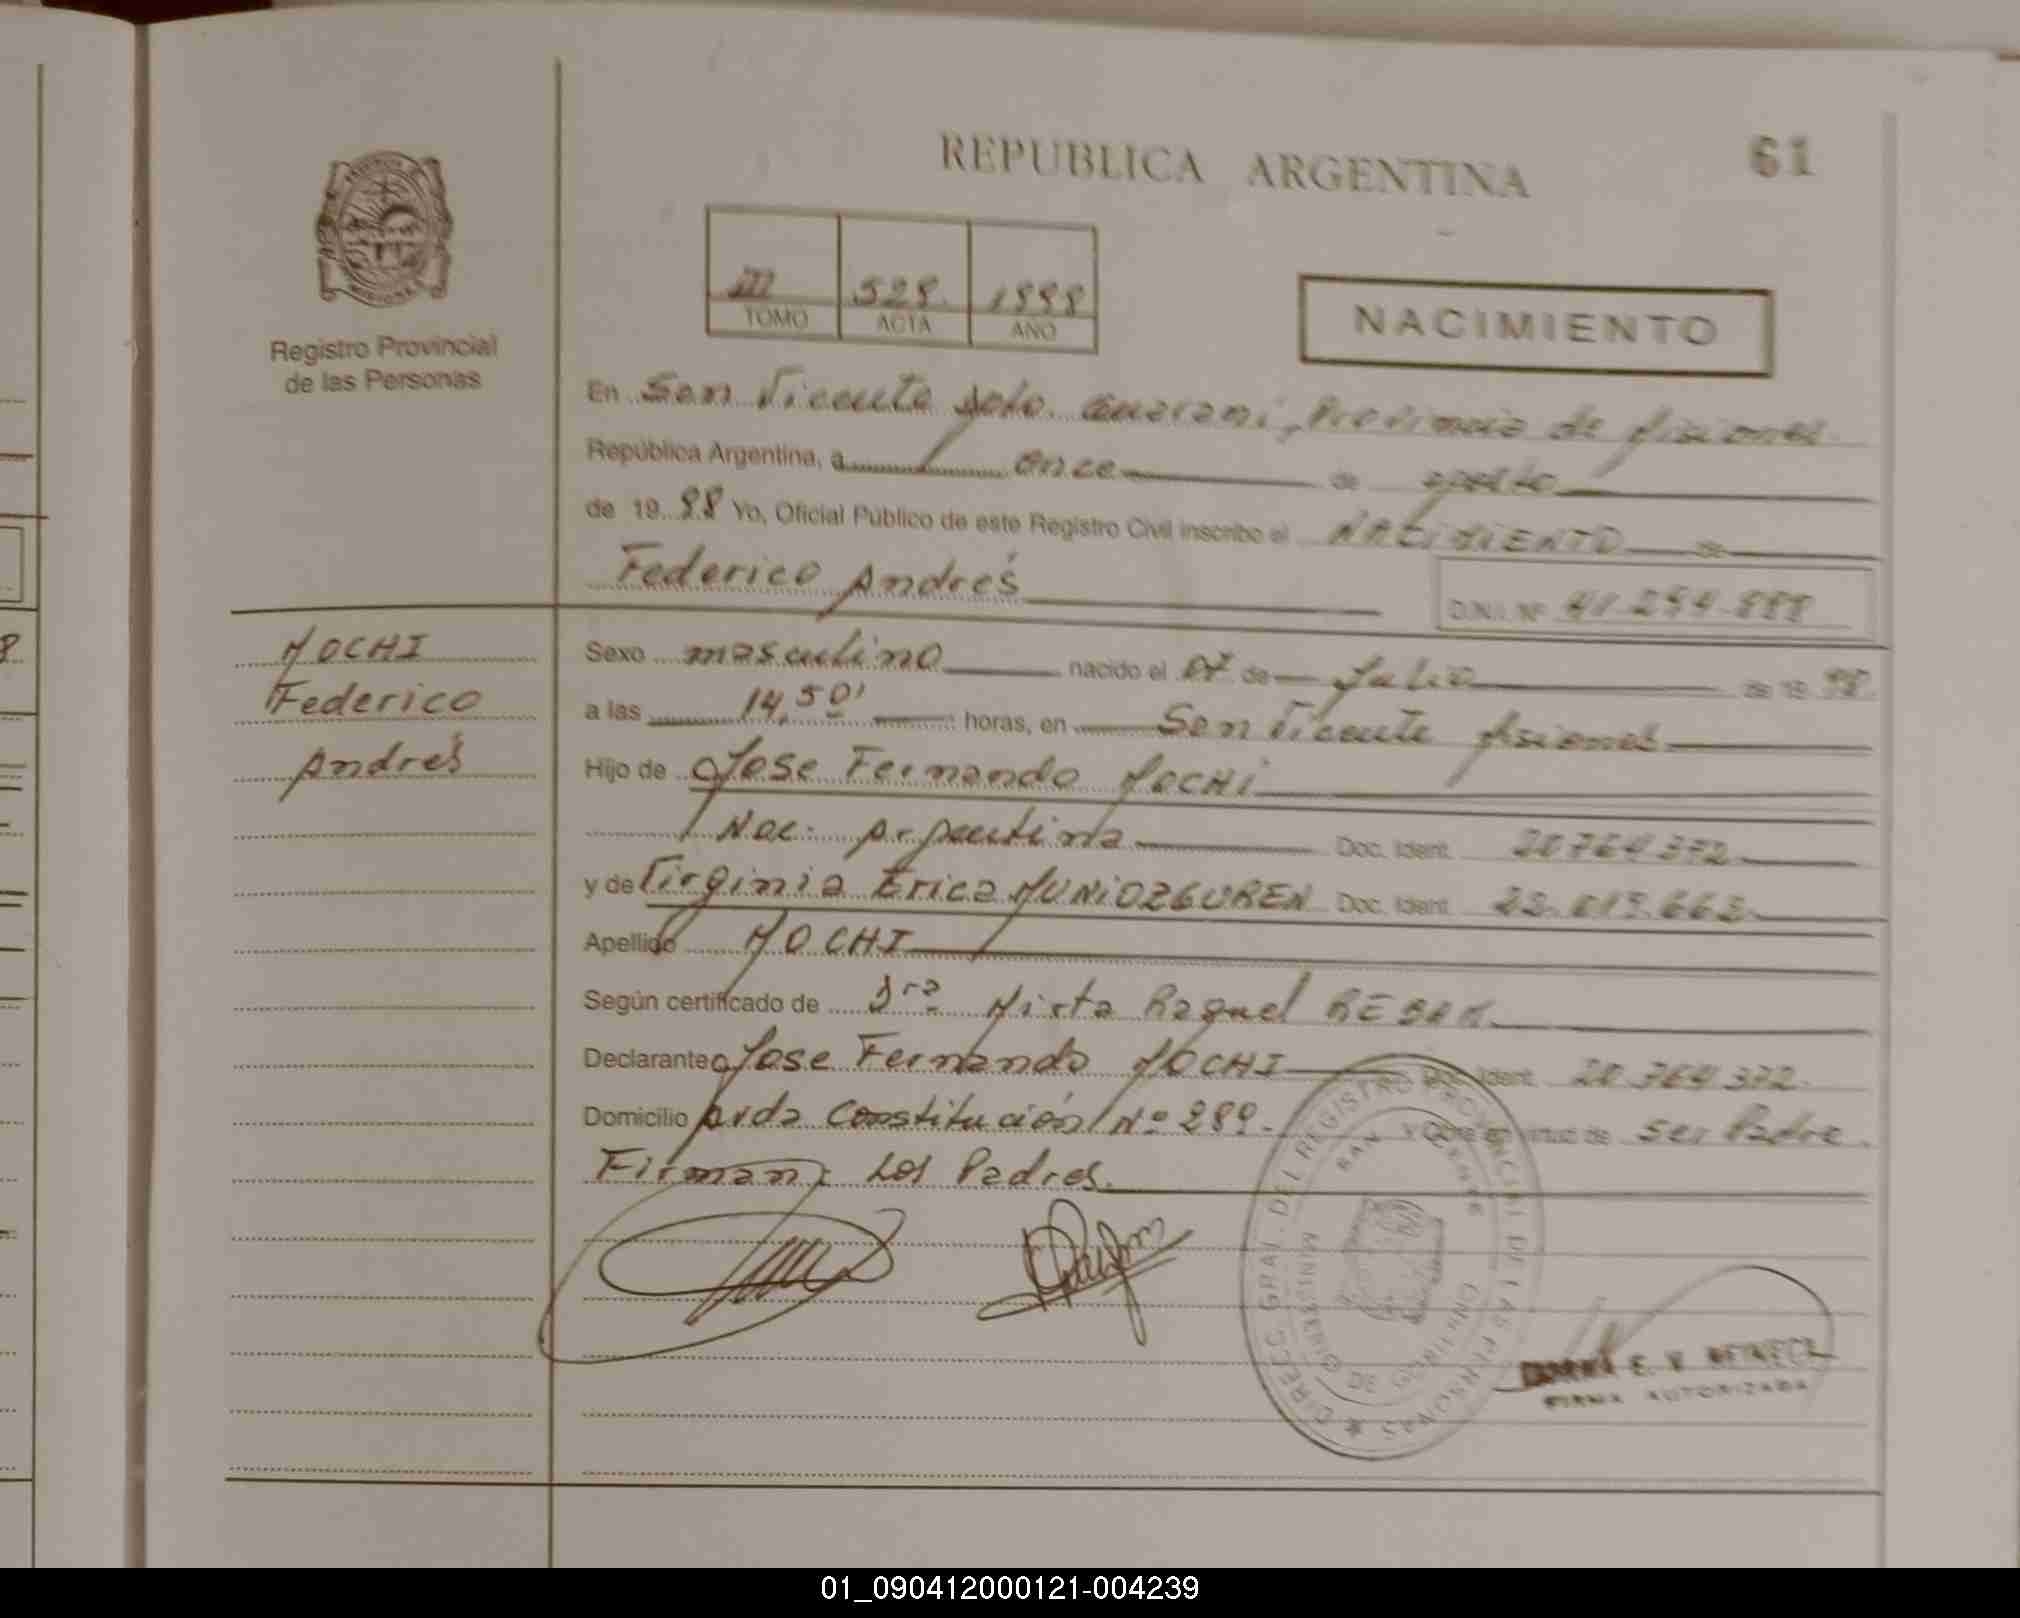 REPUBLICA ARGENTINA
61
III 529 1998
TOMO ACTA AÑO
NACIMIENTO
Registro Provincial
de las Personas
En San Vicente Dpto. Guaraní, Provincia de Misiones
República Argentina, a once de agosto
de 1998 Yo, Oficial Público de este Registro Civil inscribo el NACIMIENTO de
Federico Andrés
D.N.I. Nº 41.294.888
MOCHI
Federico
Andrés
Sexo masculino nacido el 07 de Julio de 1998
a las 14,50' horas, en San Vicente Misiones
Hijo de Jose Fernando MOCHI
Nac. Argentina Doc. Ident. 20.764.372
y de Virginia Erica MUNIOZGUREN Doc. Ident. 23.019.663
Apellido MOCHI
Según certificado de Dra Mirta Raquel
Declarante Jose Fernando MOCHI Doc. Ident. 20.764.372
Domicilio Avda Constitución Nº 289. y Obra en virtud de ser Padre.
Firman: Los Padres.
DIREC. GRAL. DEL REGISTRO PROVINCIAL DE LAS PERSONAS
SAN VICENTE
MINISTERIO DE GOBIERNO
MISIONES
E. V.
FIRMA AUTORIZADA
01_090412000121-004239